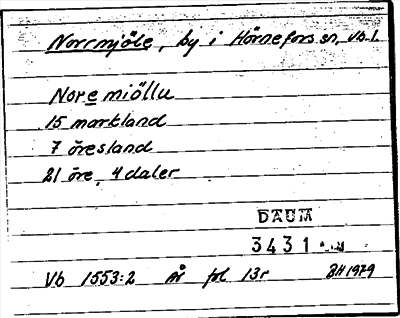 Norrmjöle, by i Hörnefors sn, Vb. l.
Nore miöllu
15 markland
7 öresland
21 öre, 4 daler
DAUM
3431
Vb 1553:2 År fol 13r BH 1979